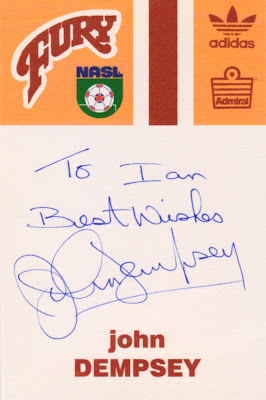 FURY
NASL
adidas
Admiral
To Ian
Best Wishes
John Dempsey
john
DEMPSEY